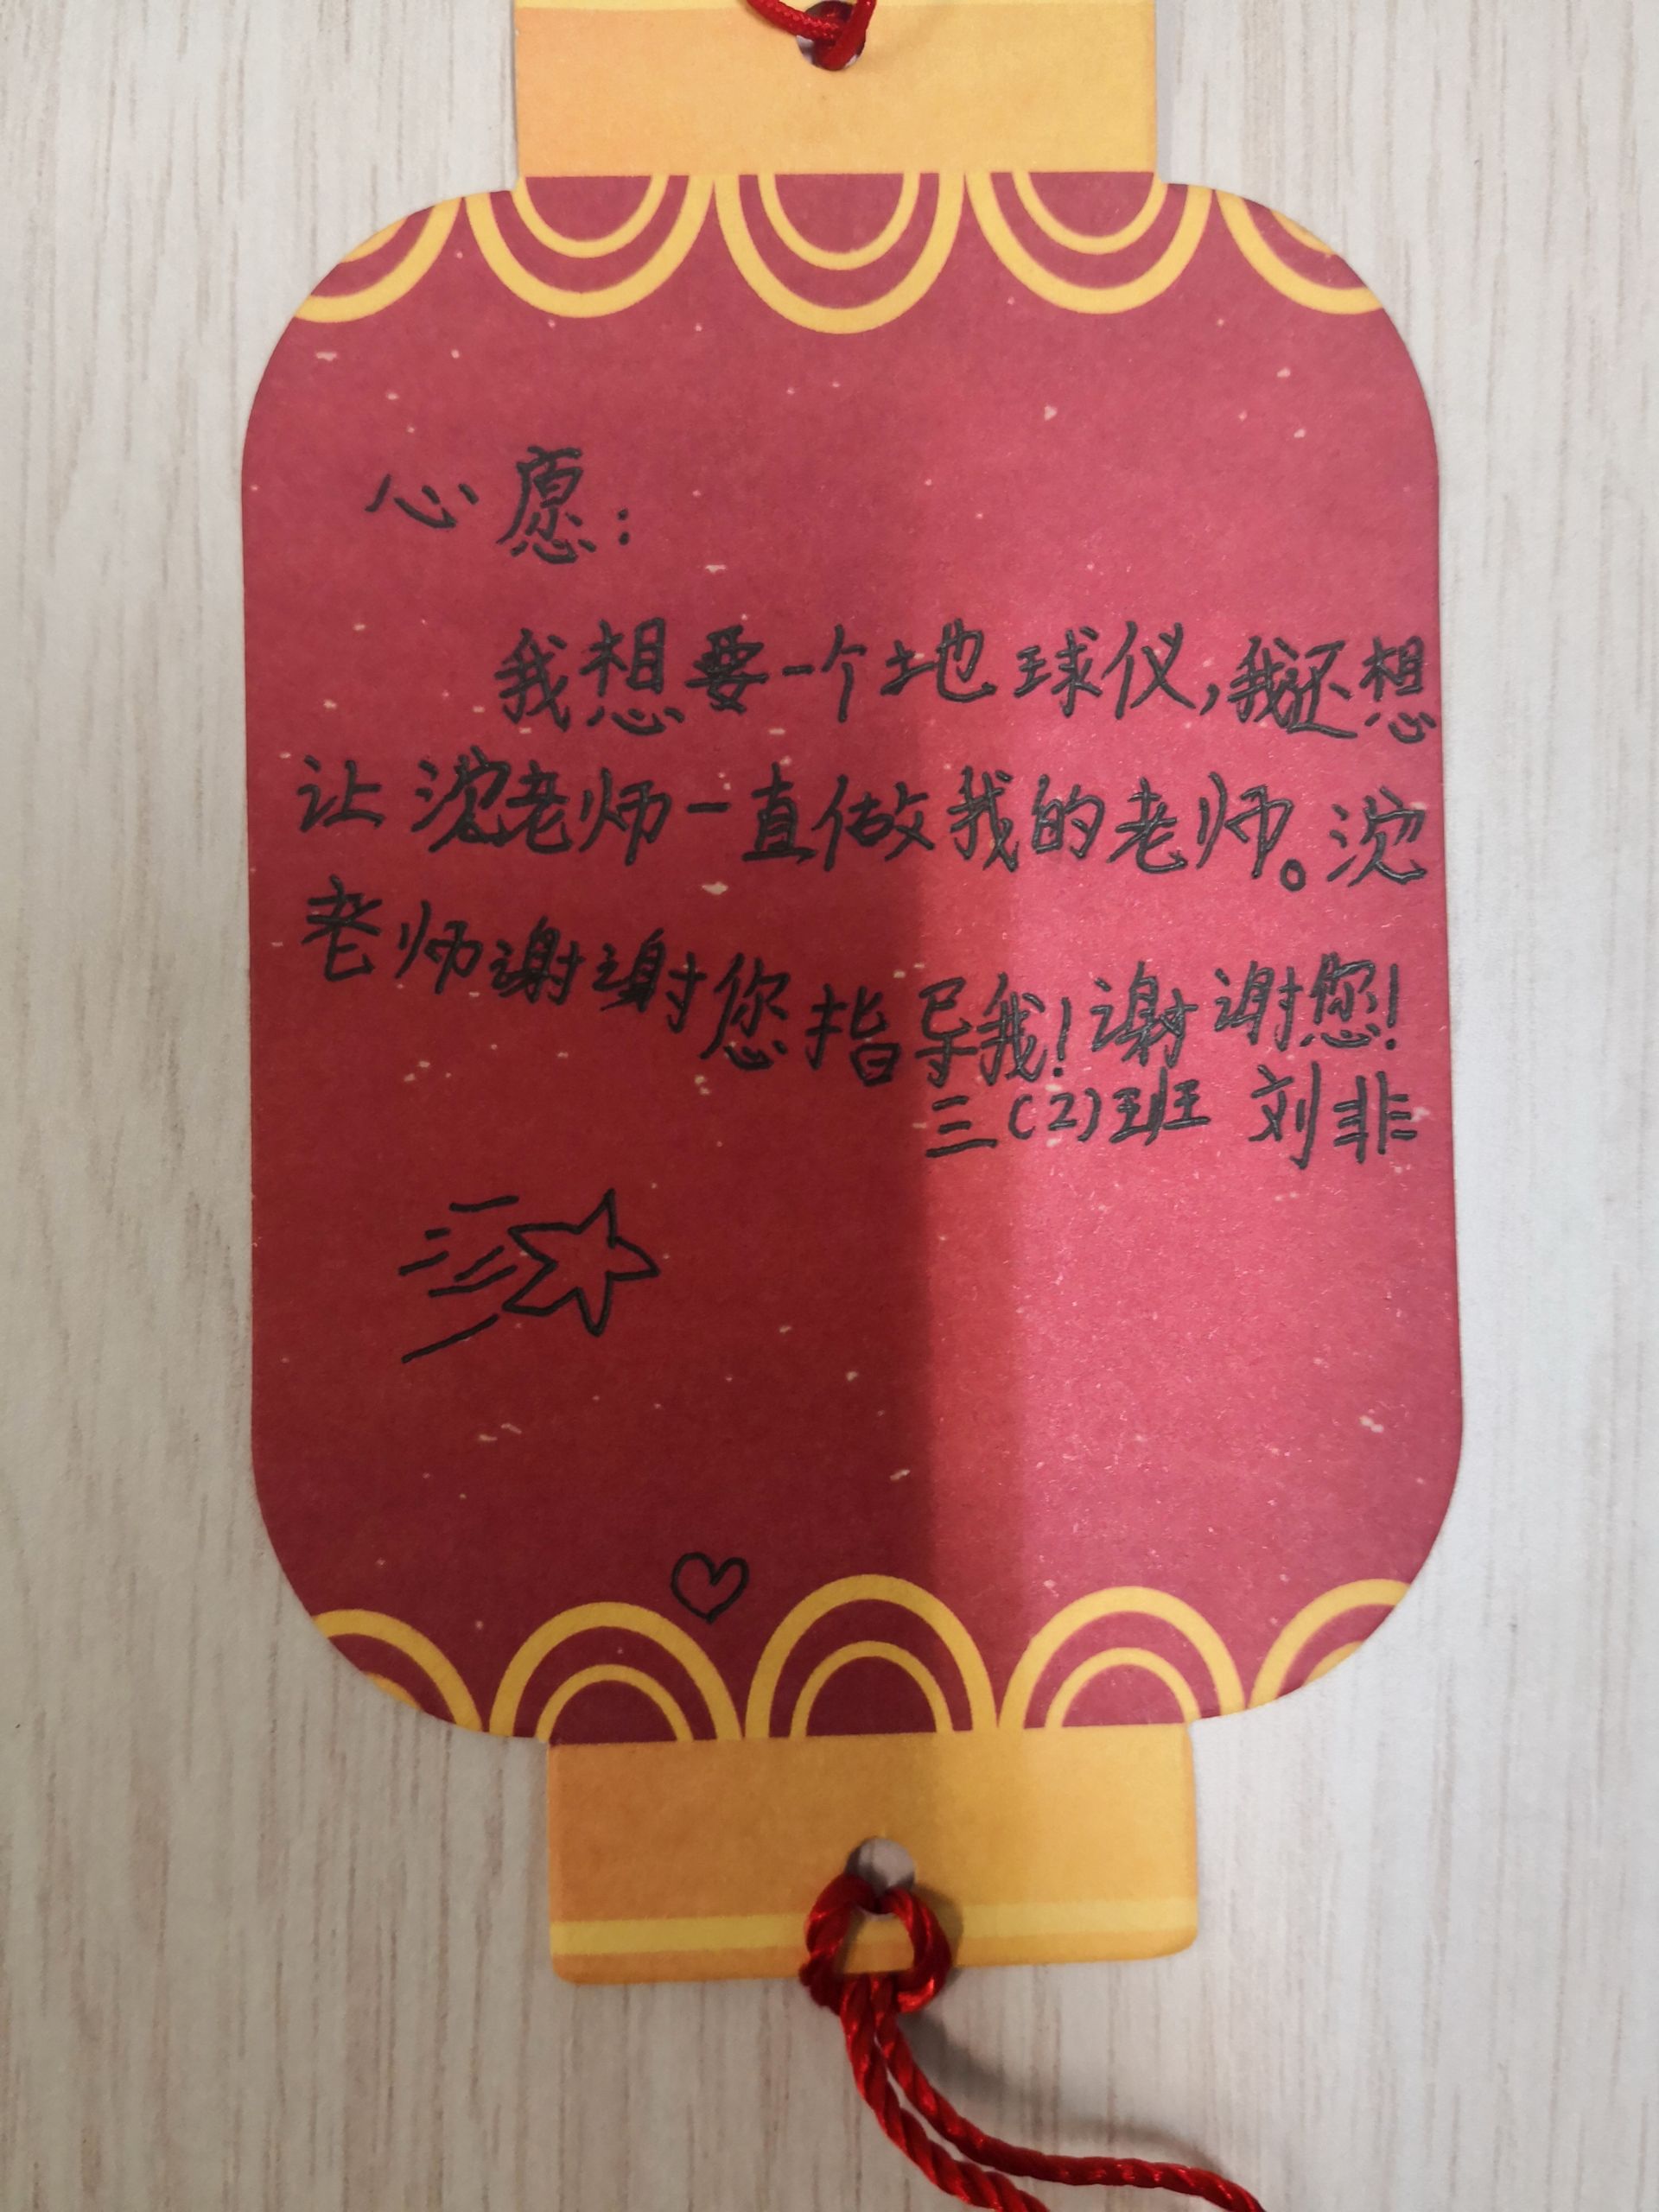 心愿：
我想要一个地球仪，我还想
让沈老师一直做我的老师。沈
老师谢谢您指导我！谢谢您！
三(2)班 刘非